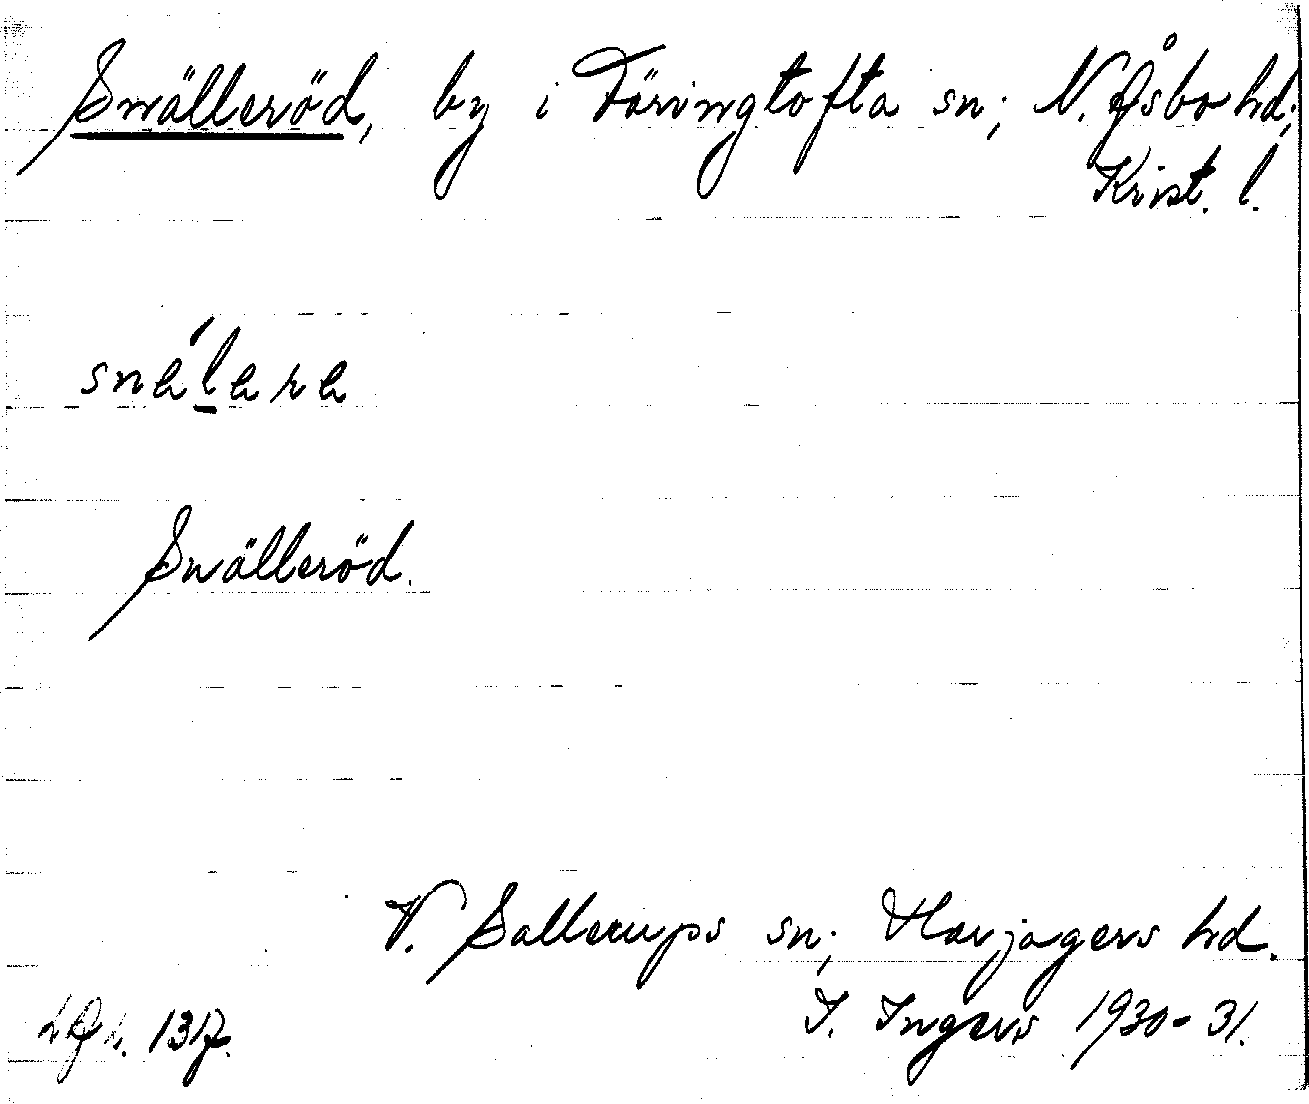 Snälleröd, by i Färingtofta sn; N. Åsbo hd;
Krist. l.
snälara
Snälleröd.
V. Sallerups sn; Harjagers hd.
I. Ingers 1930-31.